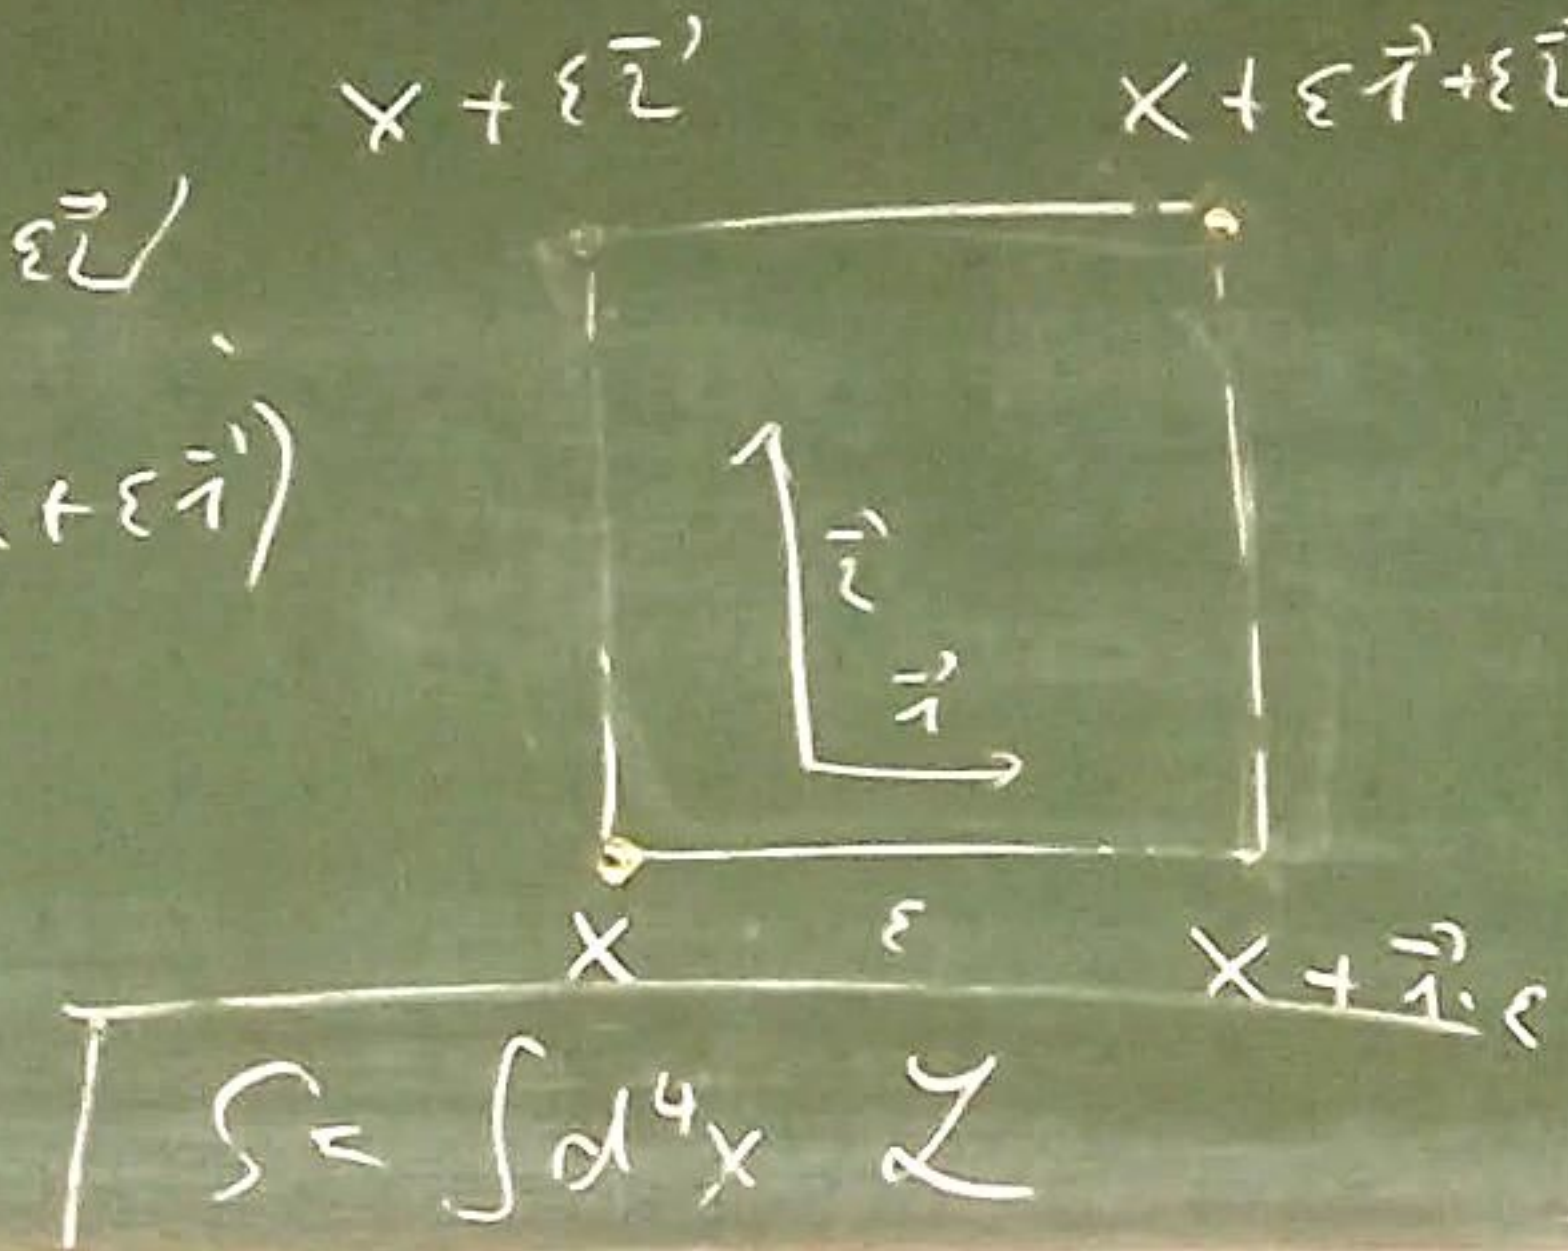 x + ε2⃗ x + ε1⃗ + ε2⃗
ε2⃗)
+ ε1⃗)
2⃗
1⃗
x ε x + 1⃗·ε
S = ∫d⁴x ℒ